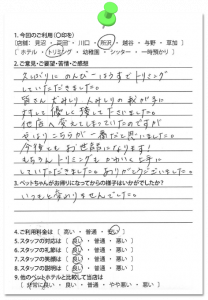 1. 今回のご利用(○印を)
[店舗: 見沼 ・ 戸田 ・ 川口 ・ 所沢 ・ 越谷 ・ 与野 ・ 草加 ]
[ ホテル ・ トリミング ・ 幼稚園 ・ シッター ・ 一時預かり ]
2. ご意見・ご要望・苦情・ご感想
久しぶりに のんびーはうすで トリミング
していただきました。
皆さん 犬みしり 人みしりの 我が子に
対して 優しく接して下さいました。
他店へ変えてしまっていたのですが
やはりこちらが 一番だと思いました。
今後とも お世話になります!
もちろん トリミングも かわいく 上手に
していただきました。ありがとうございました。
3. ペットちゃんがお帰りになってからの様子はいかがでしたか?
いつもと変わりませんでした。
4. ご利用料金は [ 高い ・ 普通 ・ 安い ]
5. スタッフの対応は [ 良い ・ 普通 ・ 悪い ]
6. スタッフの礼節は [ 良い ・ 普通 ・ 悪い ]
7. スタッフの技術は [ 良い ・ 普通 ・ 悪い ]
8. スタッフの説明は [ 良い ・ 普通 ・ 悪い ]
9. 他のペットホテルと比較して当店は
[ 非常に良い ・ 良い ・ 普通 ・ やや悪い ・ 悪い ]